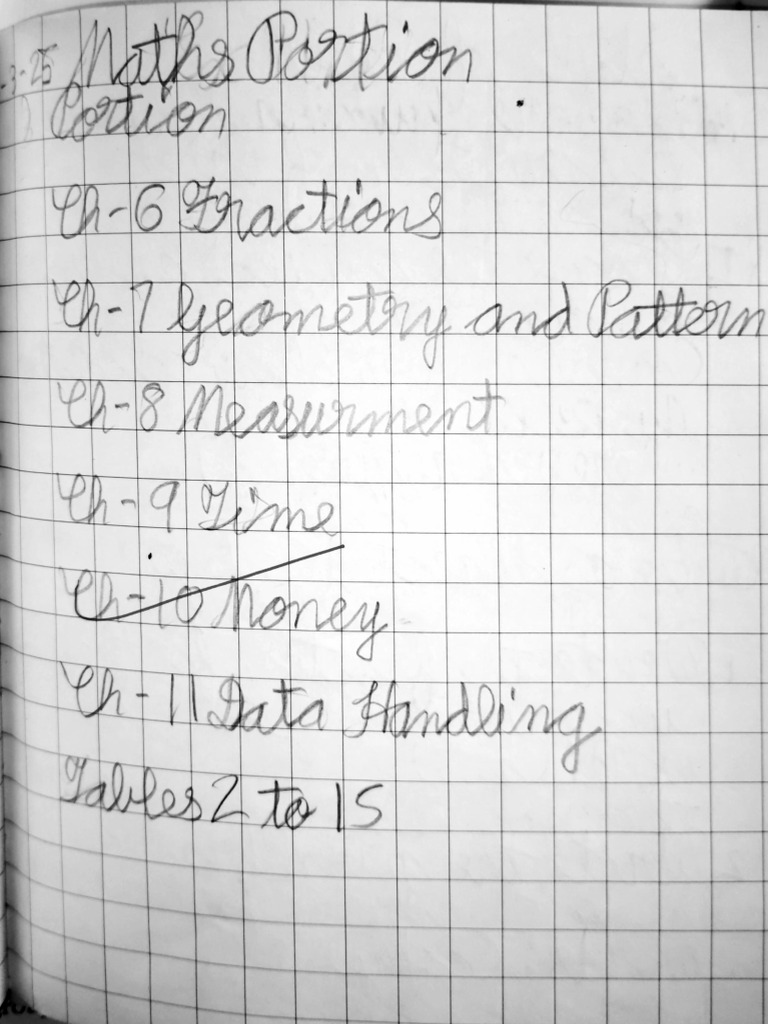 -3-25 Maths Portion
Portion
Ch-6 Fractions
Ch-7 Geometry and Pattern
Ch-8 Measurment
Ch-9 Time
Ch-10 Money
Ch-11 Data Handling
Tables 2 to 15